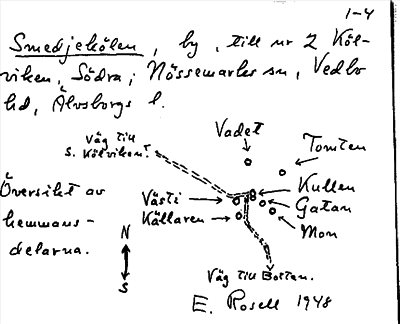 1-4
Smedjekölen, by, till nr 2 Köl-
viken, Södra; Nössemarks sn, Vedbo
hd, Älvsborgs l.
Väg till
S. Kölviken.
Vadet
Tomten
Kullen
Gatan
Mon
Översikt av
hemmans-
delarna.
Västi
Källaren
N
S
Väg till Botten.
E. Rosell 1948